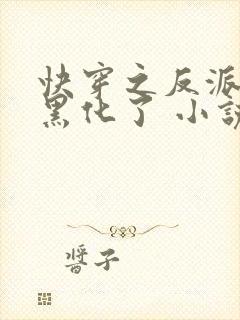 快穿之反派
黑化了 小說
醬子